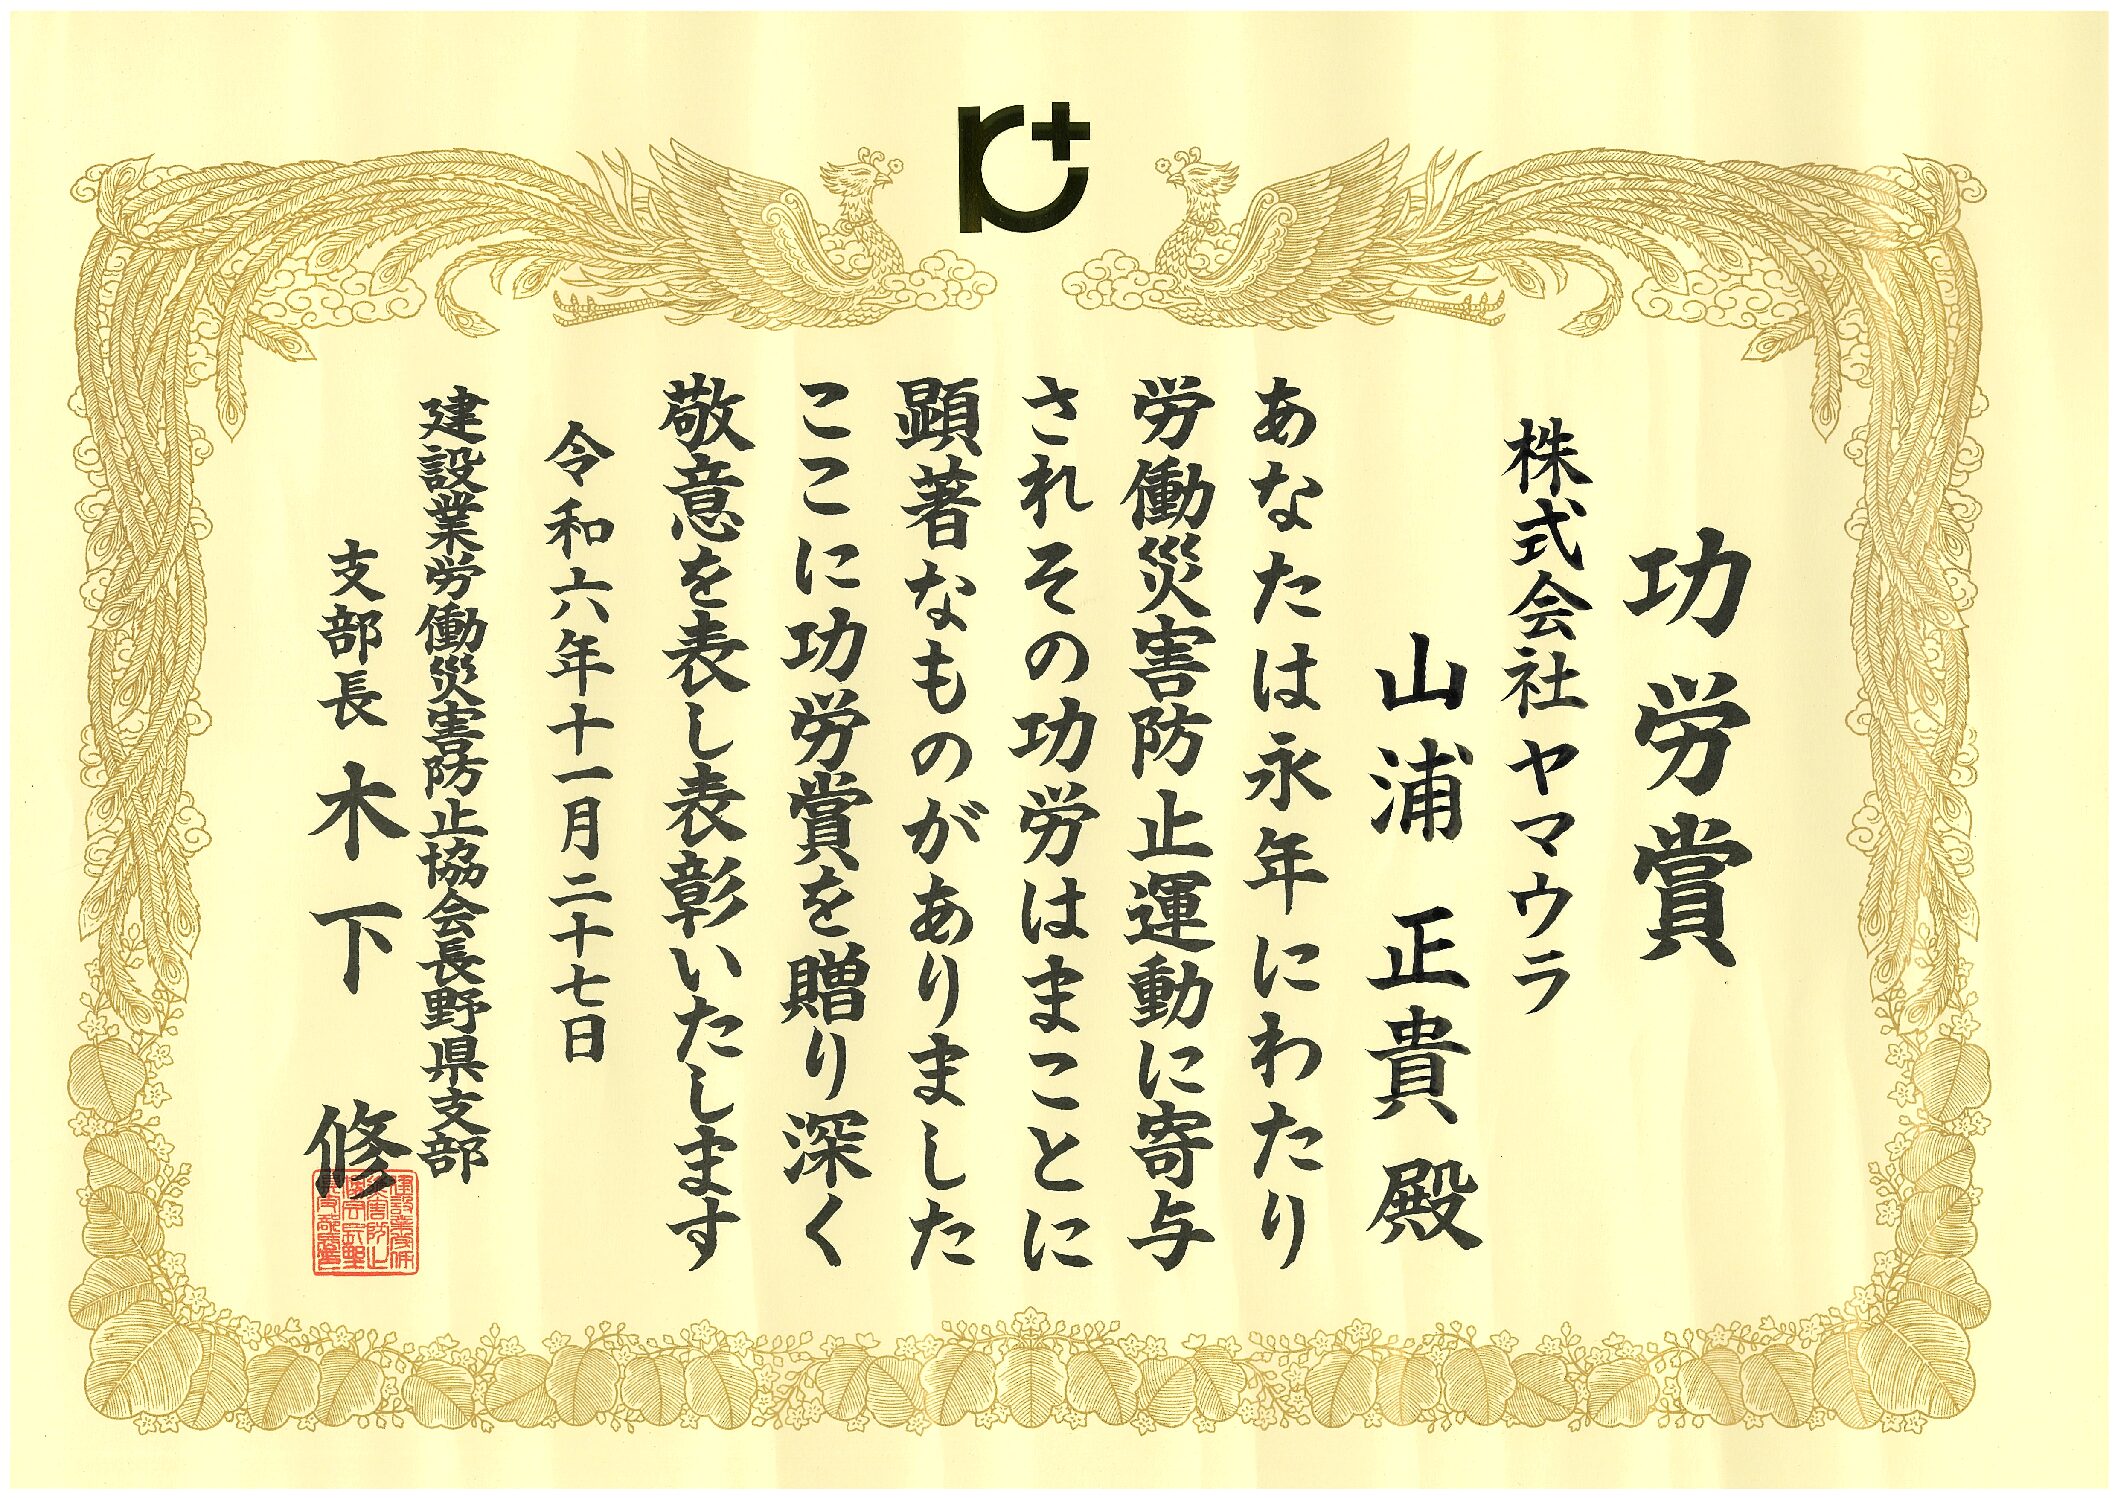 功労賞
株式会社ヤマウラ
山浦正貴殿
あなたは永年にわたり
労働災害防止運動に寄与
されその功労はまことに
顕著なものがありました
ここに功労賞を贈り深く
敬意を表し表彰いたします
令和六年十一月二十七日
建設業労働災害防止協会長野県支部
支部長 木下 修